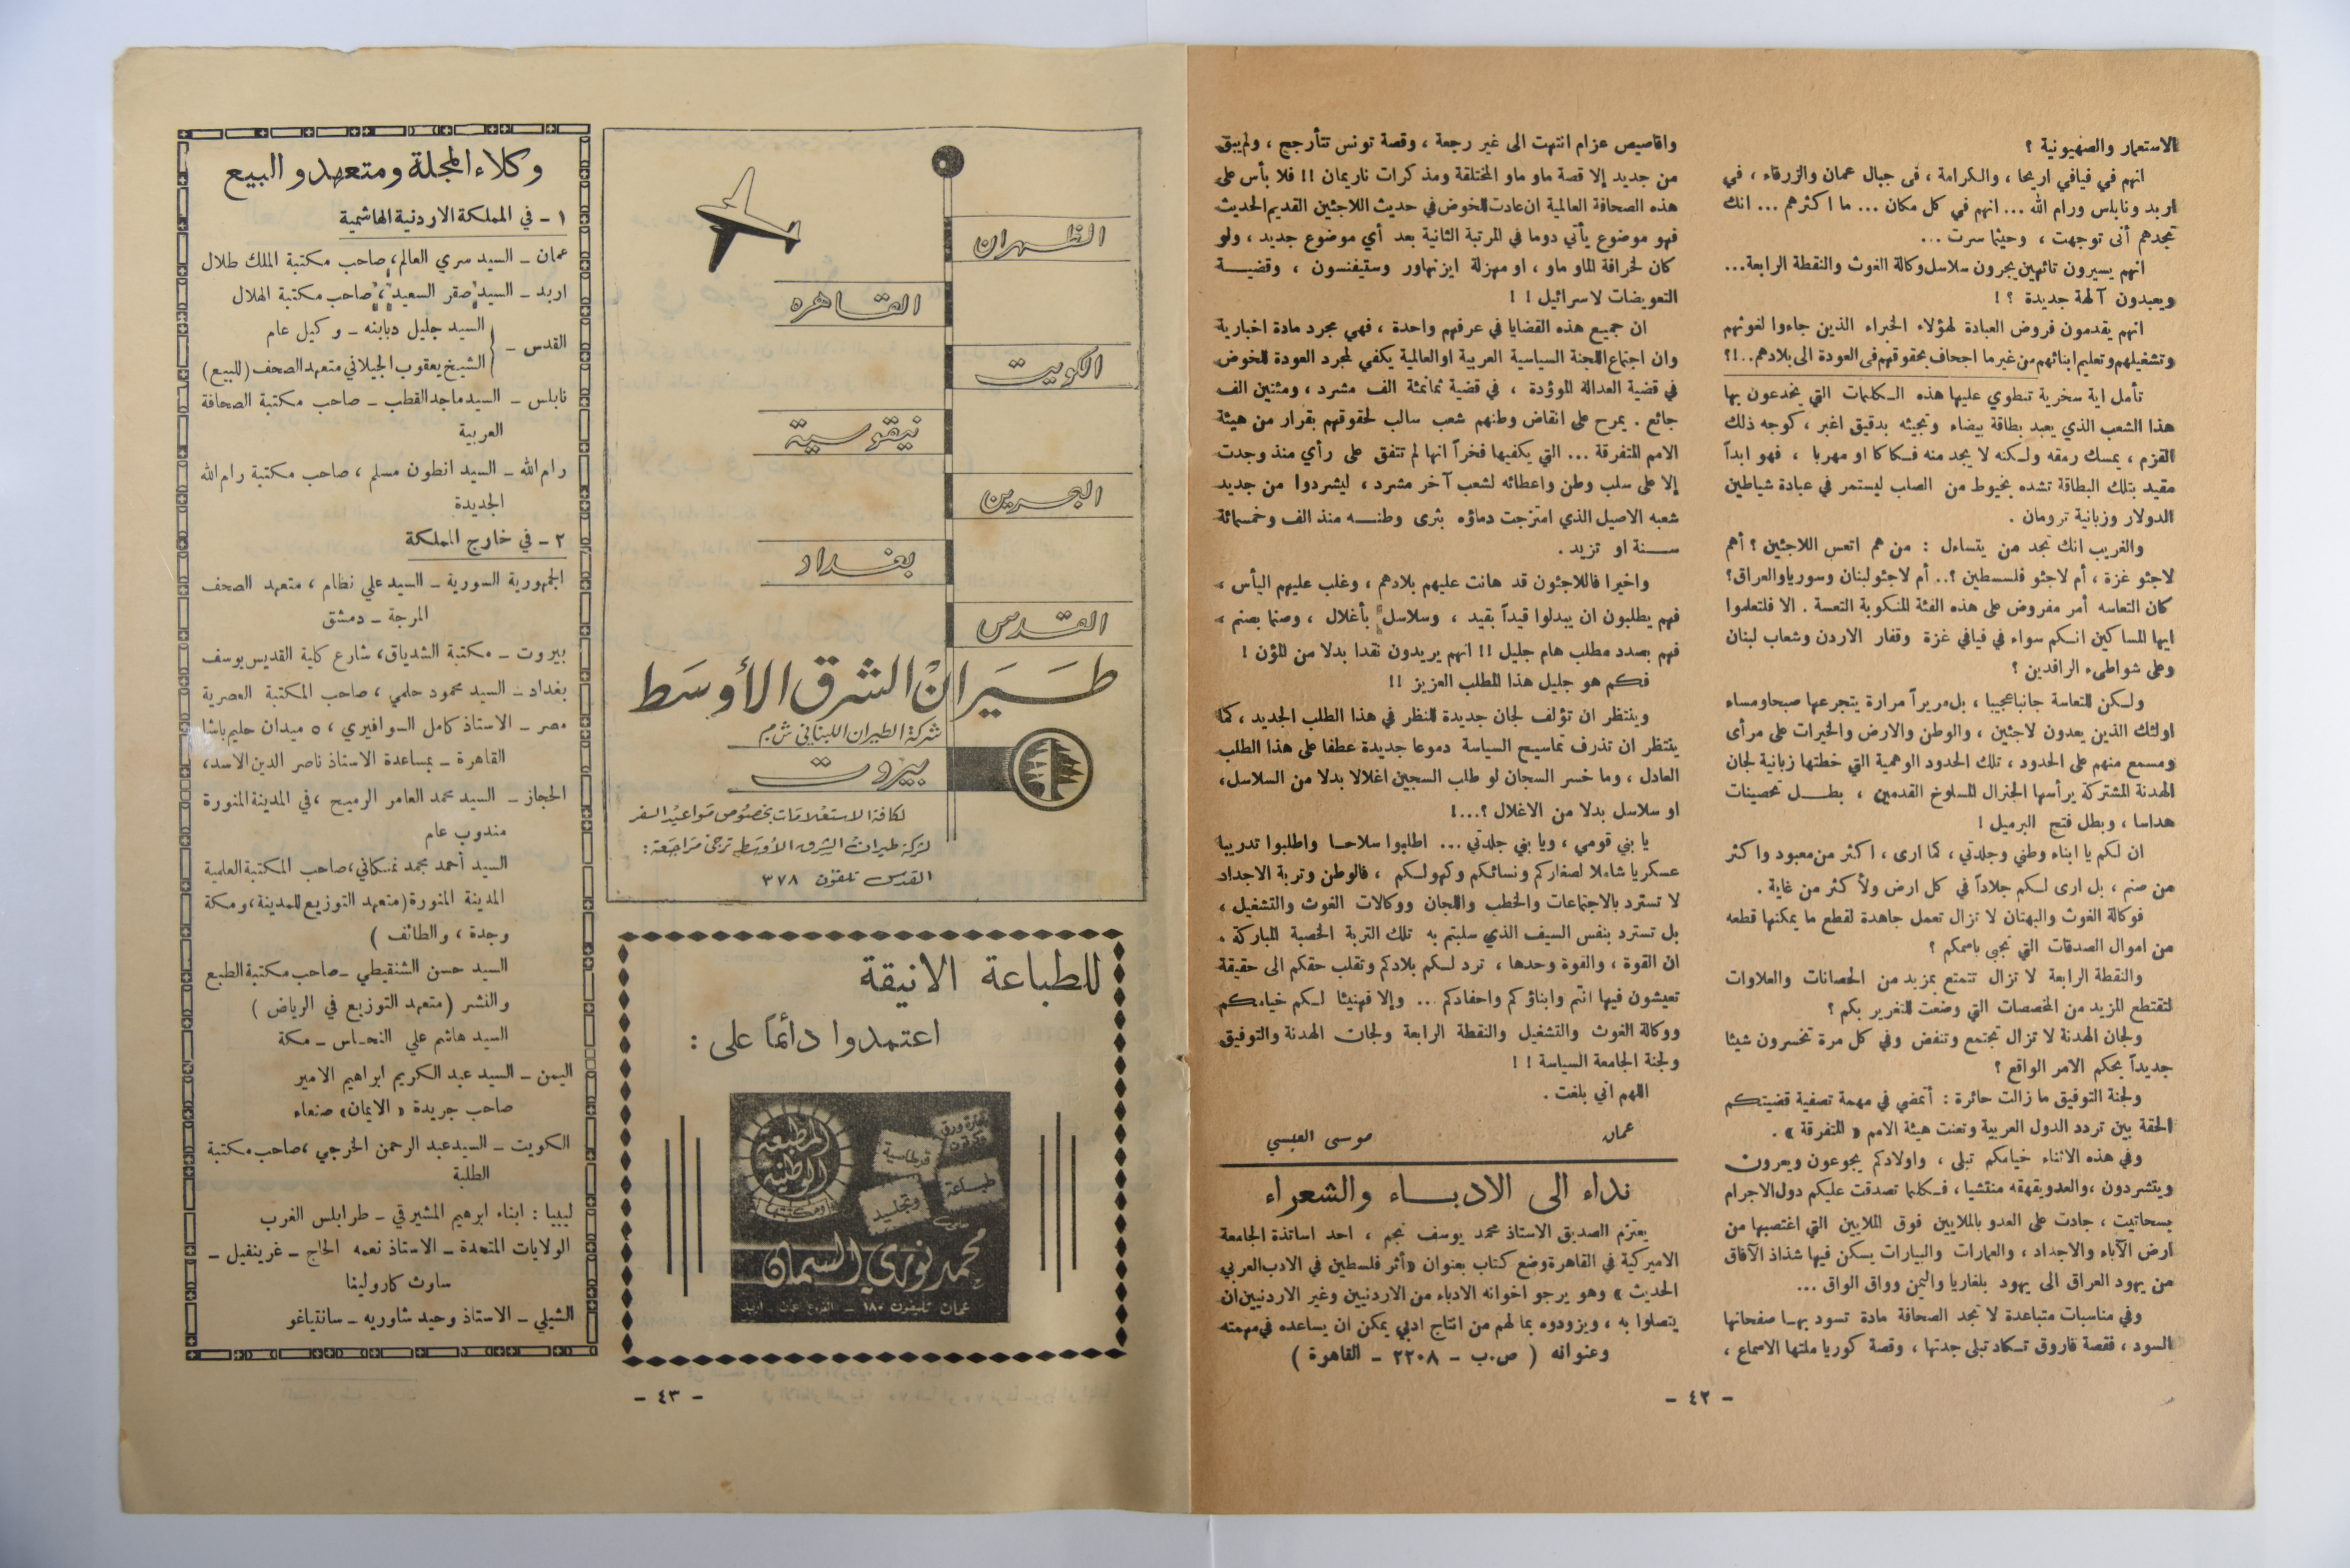 الاستعمار والصهيونية ؟
انهم في فيافي اريحا ، والكرامة ، في جبال عمان والزرقاء ، في
اربد ونابلس ورام الله ... انهم في كل مكان ... ما اكثرهم ... انك
تجدهم أنى توجهت ، وحيثما سرت ...
انهم يسيرون تائهين يجرون سلاسل وكالة الغوث والنقطة الرابعة ...
ويعبدون آلهة جديدة ؟ !
انهم يقدمون فروض العبادة لهؤلاء الخبراء الذين جاءوا لغوثهم
وتشغيلهم وتعليم ابنائهم من غير ما اجحاف بحقوقهم في العودة الى بلادهم ..!؟
تأمل اية سخرية تنطوي عليها هذه الكلمات التي يخدعون بها
هذا الشعب الذي يعبد بطاقة بيضاء وتجيئه بدقيق اغبر ، كوجه ذلك
القزم ، يمسك رمقه ولكنه لا يجد منه فكاكا او مهربا ، فهو ابداً
مقيد بتلك البطاقة تشده بخيوط من الصاب ليستمر في عبادة شياطين
الدولار وزبانية ترومان .
والغريب انك تجد من يتساءل : من هم اتعس اللاجئين ؟ أهم
لاجئو غزة ، أم لاجئو فلسطين ؟.. أم لاجئو لبنان وسوريا والعراق؟
كان التعاسه أمر مفروض على هذه الفئة المنكوبة التعسة . الا فلتعلموا
ايها المساكين انكم سواء في فيافي غزة وقفار الاردن وشعاب لبنان
وعلى شواطىء الرافدين ؟
ولكن للتعاسة جانبا عجيبا ، بل مريراً مرارة يتجرعها صبحا ومساء
اولئك الذين يعدون لاجئين ، والوطن والارض والخيرات على مرأى
ومسمع منهم على الحدود ، تلك الحدود الوهمية التي خطتها زبانية لجان
الهدنة المشتركة يرأسها الجنرال المسلوخ القدمين ، بطل تحصينات
هداسا ، وبطل فتح البرميل !
ان لكم يا ابناء وطني وجلدتي ، كما ارى ، اكثر من معبود واكثر
من صنم ، بل ارى لكم جلاداً في كل ارض ولأكثر من غاية .
فوكالة الغوث والبهتان لا تزال تعمل جاهدة لقطع ما يمكنها قطعه
من اموال الصدقات التي تجبى باسمكم ؟
والنقطة الرابعة لا تزال تتمتع بمزيد من الحصانات والعلاوات
لتقتطع المزيد من المخصصات التي وضعت للتغرير بكم ؟
ولجان الهدنة لا تزال تجتمع وتنفض وفي كل مرة تخسرون شيئا
جديداً بحكم الامر الواقع ؟
ولجنة التوفيق ما زالت حائرة : أتمضي في مهمة تصفية قضيتكم
الحقة بين تردد الدول العربية وتعنت هيئة الامم « المتفرقة » .
وفي هذه الاثناء خيامكم تبلى ، واولادكم يجوعون ويعرون
ويتشردون ، والعدو يقهقه منتشيا ، فكلما تصدقت عليكم دول الاجرام
بسحاتيت ، جادت على العدو بالملايين فوق الملايين التي اغتصبها من
ارض الآباء والاجداد ، والعمارات والبيارات يسكن فيها شذاذ الآفاق
من يهود العراق الى يهود بلغاريا واليمن وواق الواق ...
وفي مناسبات متباعدة لا تجد الصحافة مادة تسود بها صفحاتها
السود ، فقصة فاروق تكاد تبلى جدتها ، وقصة كوريا ملتها الاسماع ،
واقاصيص عزام انتهت الى غير رجعة ، وقصة تونس تتأرجح ، ولم يبق
من جديد إلا قصة ماو ماو المختلقة ومذكرات ناريمان !! فلا بأس على
هذه الصحافة العالمية ان عادت للخوض في حديث اللاجئين القديم الحديث
فهو موضوع يأتي دوما في المرتبة الثانية بعد أي موضوع جديد ، ولو
كان لخرافة الماو ماو ، او مهزلة ايزنهاور وستيفنسون ، وقضية
التعويضات لاسرائيل ! !
ان جميع هذه القضايا في عرفهم واحدة ، فهي مجرد مادة اخبارية
وان اجتماع اللجنة السياسية العربية او العالمية يكفي لمجرد العودة للخوض
في قضية العدالة الموؤدة ، في قضية ثمانمئة الف مشرد ، ومئتين الف
جائع . يمرح على انقاض وطنهم شعب سالب لحقوقهم بقرار من هيئة
الامم المتفرقة ... التي يكفيها فخراً انها لم تتفق على رأي منذ وجدت
إلا على سلب وطن واعطائه لشعب آخر مشرد ، ليشردوا من جديد
شعبه الاصيل الذي امتزجت دماؤه بثرى وطنه منذ الف وخمسمائة
سنة او تزيد .
واخيرا فاللاجئون قد هانت عليهم بلادهم ، وغلب عليهم اليأس ،
فهم يطلبون ان يبدلوا قيداً بقيد ، وسلاسل بأغلال ، وصنما بصنم ،
فهم بصدد مطلب هام جليل !! انهم يريدون نقدا بدلا من المؤن !
فكم هو جليل هذا المطلب العزيز !!
وينتظر ان تؤلف لجان جديدة للنظر في هذا الطلب الجديد ، كما
ينتظر ان تذرف تماسيح السياسة دموعا جديدة عطفا على هذا الطلب
العادل ، وما خسر السجان لو طلب السجين اغلالا بدلا من السلاسل،
او سلاسل بدلا من الاغلال ؟...!
يا بني قومي ، ويا بني جلدتي ... اطلبوا سلاحا واطلبوا تدريبا
عسكريا شاملا لصغاركم ونسائكم وكهولكم ، فالوطن وتربة الاجداد
لا تسترد بالاجتماعات والخطب واللجان ووكالات الغوث والتشغيل ،
بل تسترد بنفس السيف الذي سلبتم به تلك التربة الخصبة المباركة .
ان القوة ، والقوة وحدها ، ترد لكم بلادكم وتقلب حقكم الى حقيقة
تعيشون فيها انتم وابناؤكم واحفادكم ... وإلا فهنيئا لكم خيامكم
ووكالة الغوث والتشغيل والنقطة الرابعة ولجان الهدنة والتوفيق
ولجنة الجامعة السياسة ! !
اللهم اني بلغت .
عمان موسى العبسي
نداء الى الادباء والشعراء
يعتزم الصديق الاستاذ محمد يوسف نجم ، احد اساتذة الجامعة
الاميركية في القاهرة وضع كتاب بعنوان «أثر فلسطين في الادب العربي
الحديث » وهو يرجو اخوانه الادباء من الاردنيين وغير الاردنيين ان
يتصلوا به ، ويزودوه بما لهم من انتاج ادبي يمكن ان يساعده في مهمته
وعنوانه ( ص.ب - ٢٢٠٨ - القاهرة )
- ٤٢ -
الظهران
القاهره
الكويت
نيقوسية
البحرين
بغداد
القدس
طيران الشرق الأوسط
شركة الطيران اللبناني ش م
بيروت
لكافة الاستعلامات بخصوص مواعيد السفر
لشركة طيران الشرق الأوسط ترجى مراجعة :
القدس تلفون ٣٧٨
للطباعة الانيقة
اعتمدوا دائماً على :
المطبعة
الوطنية
ومكتبتها
تجارة ورق
وكرتون
قرطاسية
طباعة
وتجليد
محمد نوري السمان
عمان تليفون ١٨٠ - الفروع عمان - اربد
- ٤٣ -
وكلاء المجلة ومتعهدو البيع
١ - في المملكة الاردنية الهاشمية
عمان - السيد سري العالم، صاحب مكتبة الملك طلال
اربد - السيد صقر السعيد، صاحب مكتبة الهلال
القدس - السيد جليل دبابنه - وكيل عام
الشيخ يعقوب الجيلاني متعهد الصحف (للبيع)
نابلس - السيد ماجد القطب - صاحب مكتبة الصحافة
العربية
رام الله - السيد انطون مسلم ، صاحب مكتبة رام الله
الجديدة
٢ - في خارج المملكة
الجمهورية السورية - السيد علي نظام ، متعهد الصحف
المرجة - دمشق
بيروت - مكتبة الشدياق، شارع كلية القديس يوسف
بغداد - السيد محمود حلمي ، صاحب المكتبة العصرية
مصر - الاستاذ كامل السوافيري ، ٥ ميدان حليم باشا
القاهرة - بمساعدة الاستاذ ناصر الدين الاسد،
الحجاز - السيد محمد العامر الرميح ، في المدينة المنورة
مندوب عام
السيد أحمد محمد نمنكاني، صاحب المكتبة العلمية
المدينة المنورة (متعهد التوزيع للمدينة، ومكة
وجدة ، والطائف )
السيد حسن الشنقيطي - صاحب مكتبة الطبع
والنشر (متعهد التوزيع في الرياض )
السيد هاشم علي النحاس - مكة
اليمن - السيد عبد الكريم ابراهيم الامير
صاحب جريدة « الايمان» صنعاء
الكويت - السيد عبد الرحمن الخرجي ، صاحب مكتبة
الطلبة
ليبيا : ابناء ابرهيم المشيرقي - طرابلس الغرب
الولايات المتحدة - الاستاذ نعمه الحاج - غرينفيل -
ساوث كارولينا
الشيلي - الاستاذ وحيد شاوريه - سانتياغو